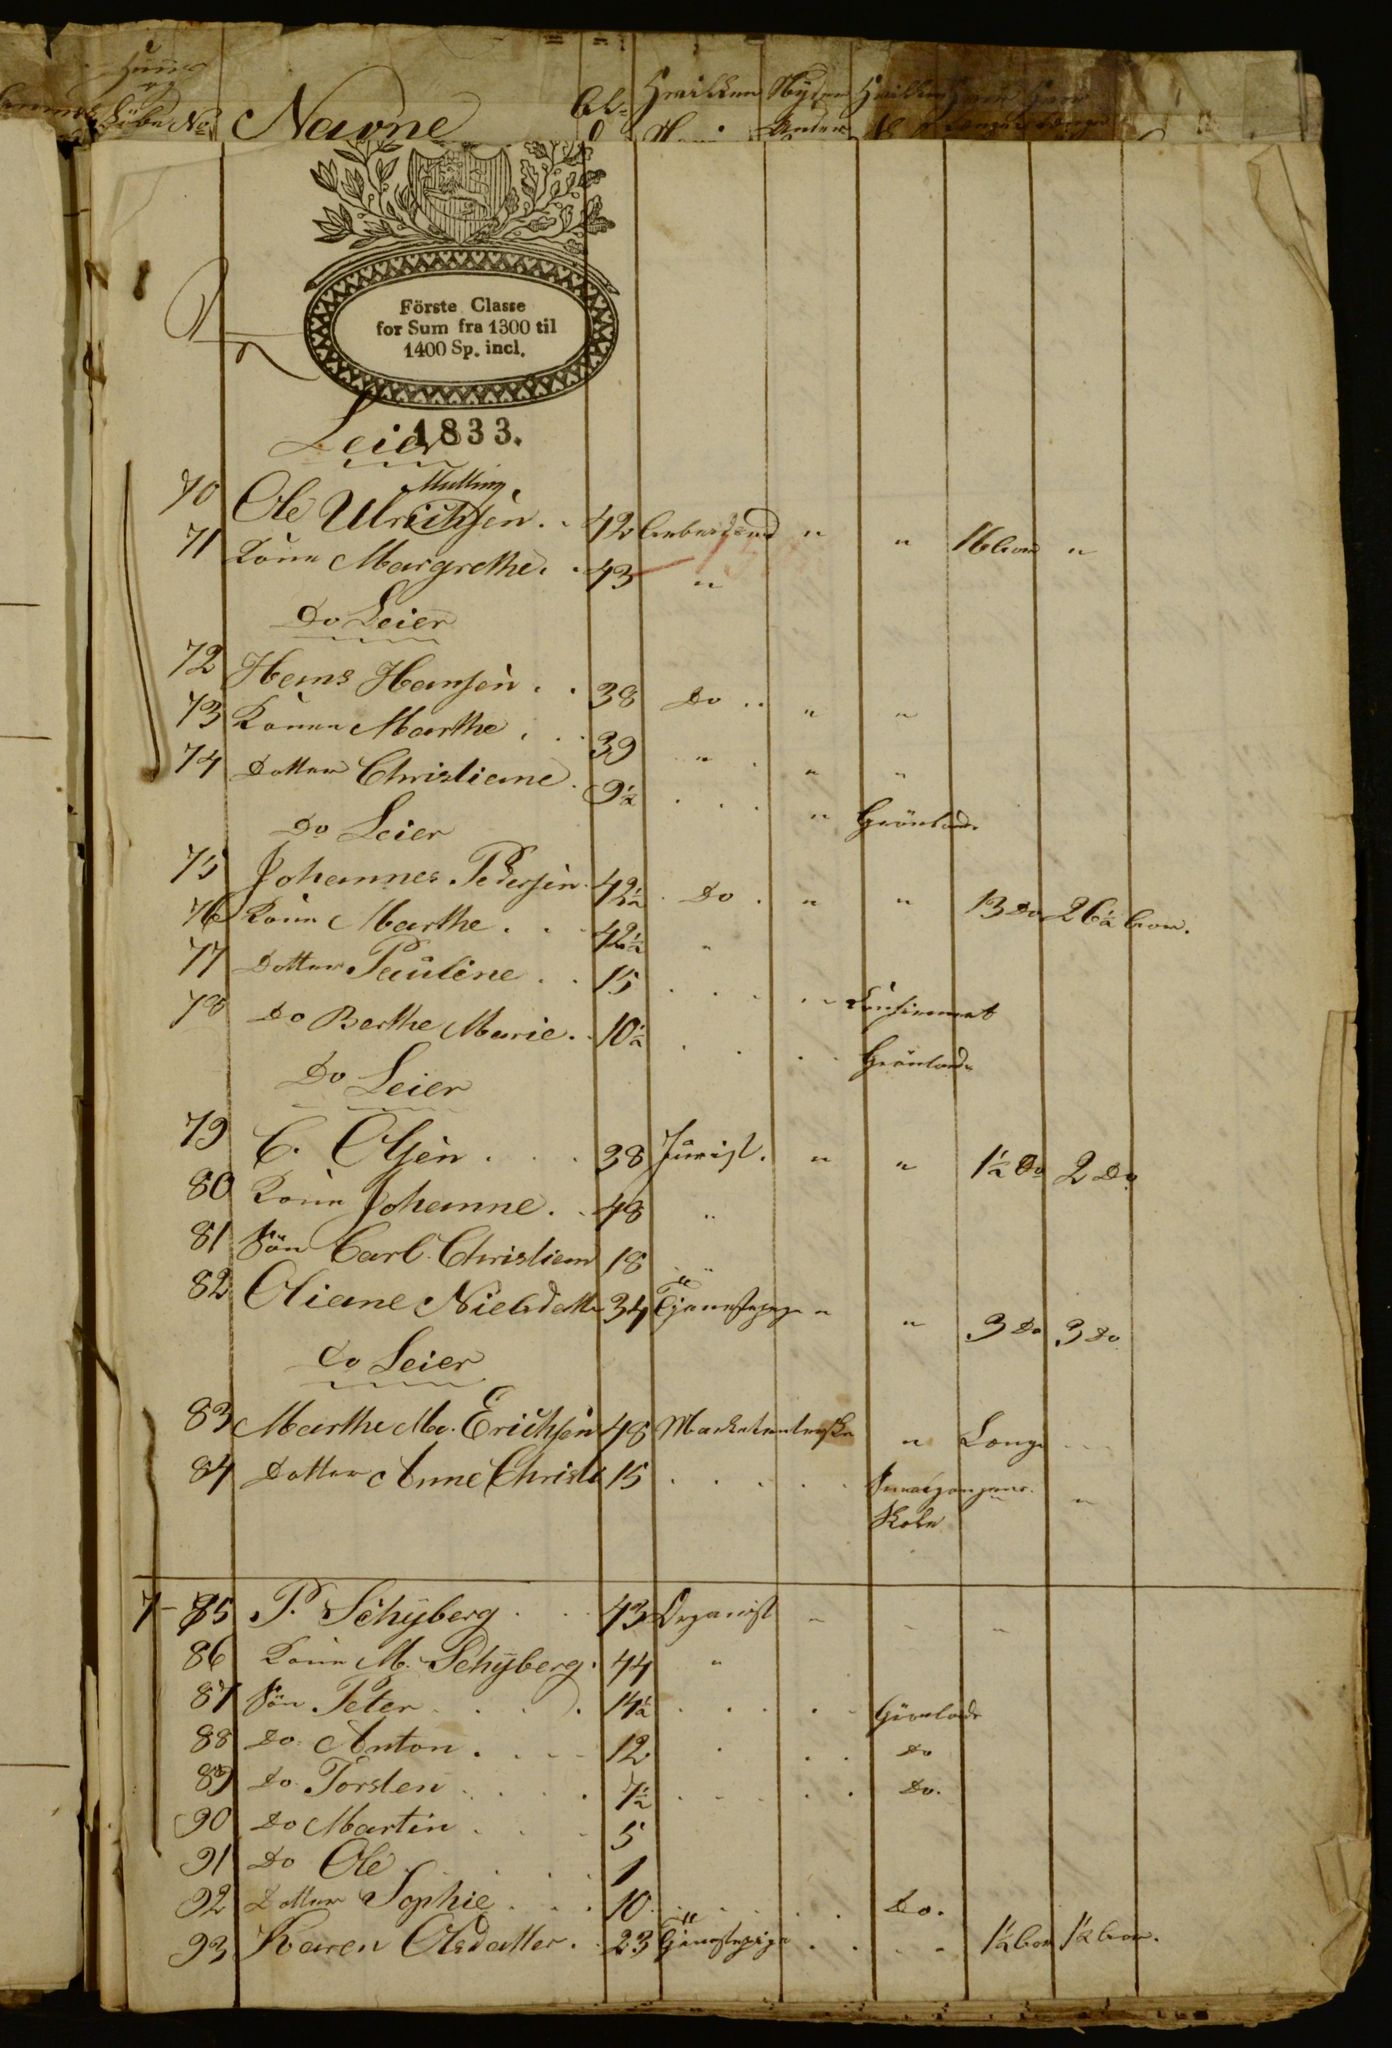 Navne
Første Classe
for Sum fra 1300 til
1400 Sp. incl.
1833.
Leier
Mulling
70 Ole Ulrichsen . . 42 Arbeidsmd " " 16 aar "
71 Kone Margrethe . . 43 "
Do Leier
72 Hans Hansen . . 38 Do . . " "
73 Konen Marthe . . . 39 " . " "
74 Datter Christiane . 9½ . . . " Grönlands
Do Leier
75 Johannes Pedersen . 42½ . Do . " " 13 Do 26½ aar.
76 Kone Marthe . . . 42½ "
77 Datter Pauline . . 15 . . . . " Confirmert
78 Do Berthe Marie . . 10½ . . . Grönlands
Do Leier
79 C. Olsen . . . 38 Jurist. " " 1½ Do 2 Do
80 Kone Johanne . . 48 "
81 Sön Carl Christian 18 . "
82 Oliane Nielsdatter 34 Tjenestepige " " 3 Do 3 Do
Do Leier
83 Marthe Ma. Erichsen 48 Marketenterske " Længe
84 Datter Anne Christi 15 . . . . . "
Skole
7 - 85 P. Schyberg . . . 43 Organist " " "
86 Kone M. Schyberg . 44 "
87 Sön Peter . . . . 14½ . . . . . Grönlands
88 Do. Anton . . . . 12 . . . Do
89 Do. Torsten . . . . 7½ . . . . . Do.
90 Do Martin . . . 5
91 Do Ole . . . . 1
92 Datter Sophie . . . 10 . . . . . Do.
93 Karen Olsdatter . . 23 Tjenestepige . . . . 1½ aar 1½ aar.